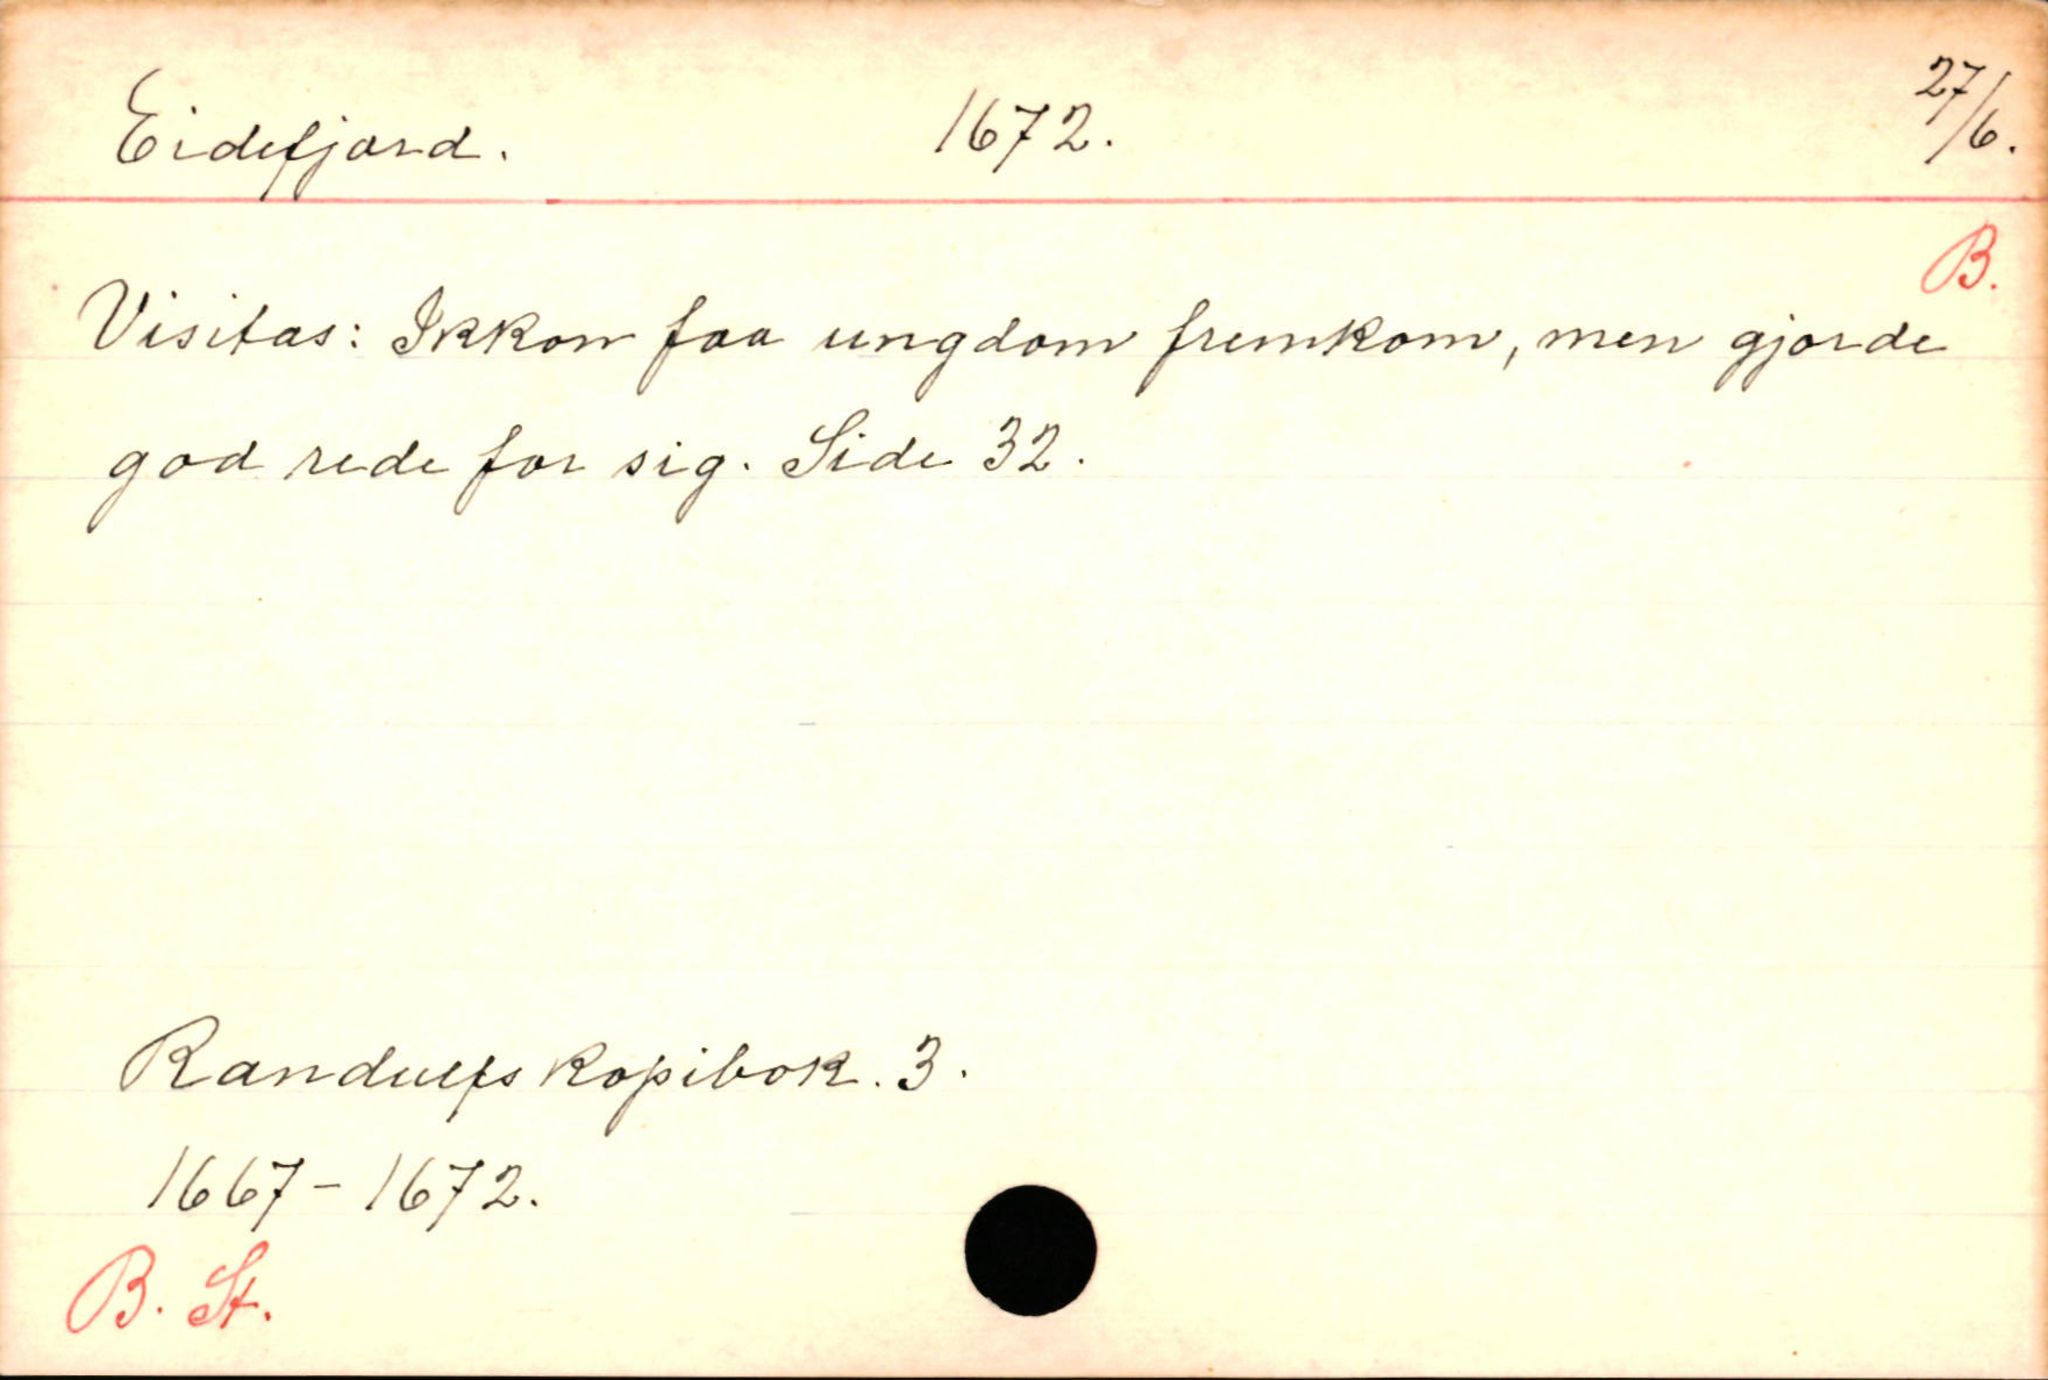 Eidefjord. 1672. 27/6.
B.
Visitas: Ikkon faa ungdom fremkom, men gjorde
god rede for sig. Side 32.
Randulfs Kopibok. 3.
1667-1672.
B. St.